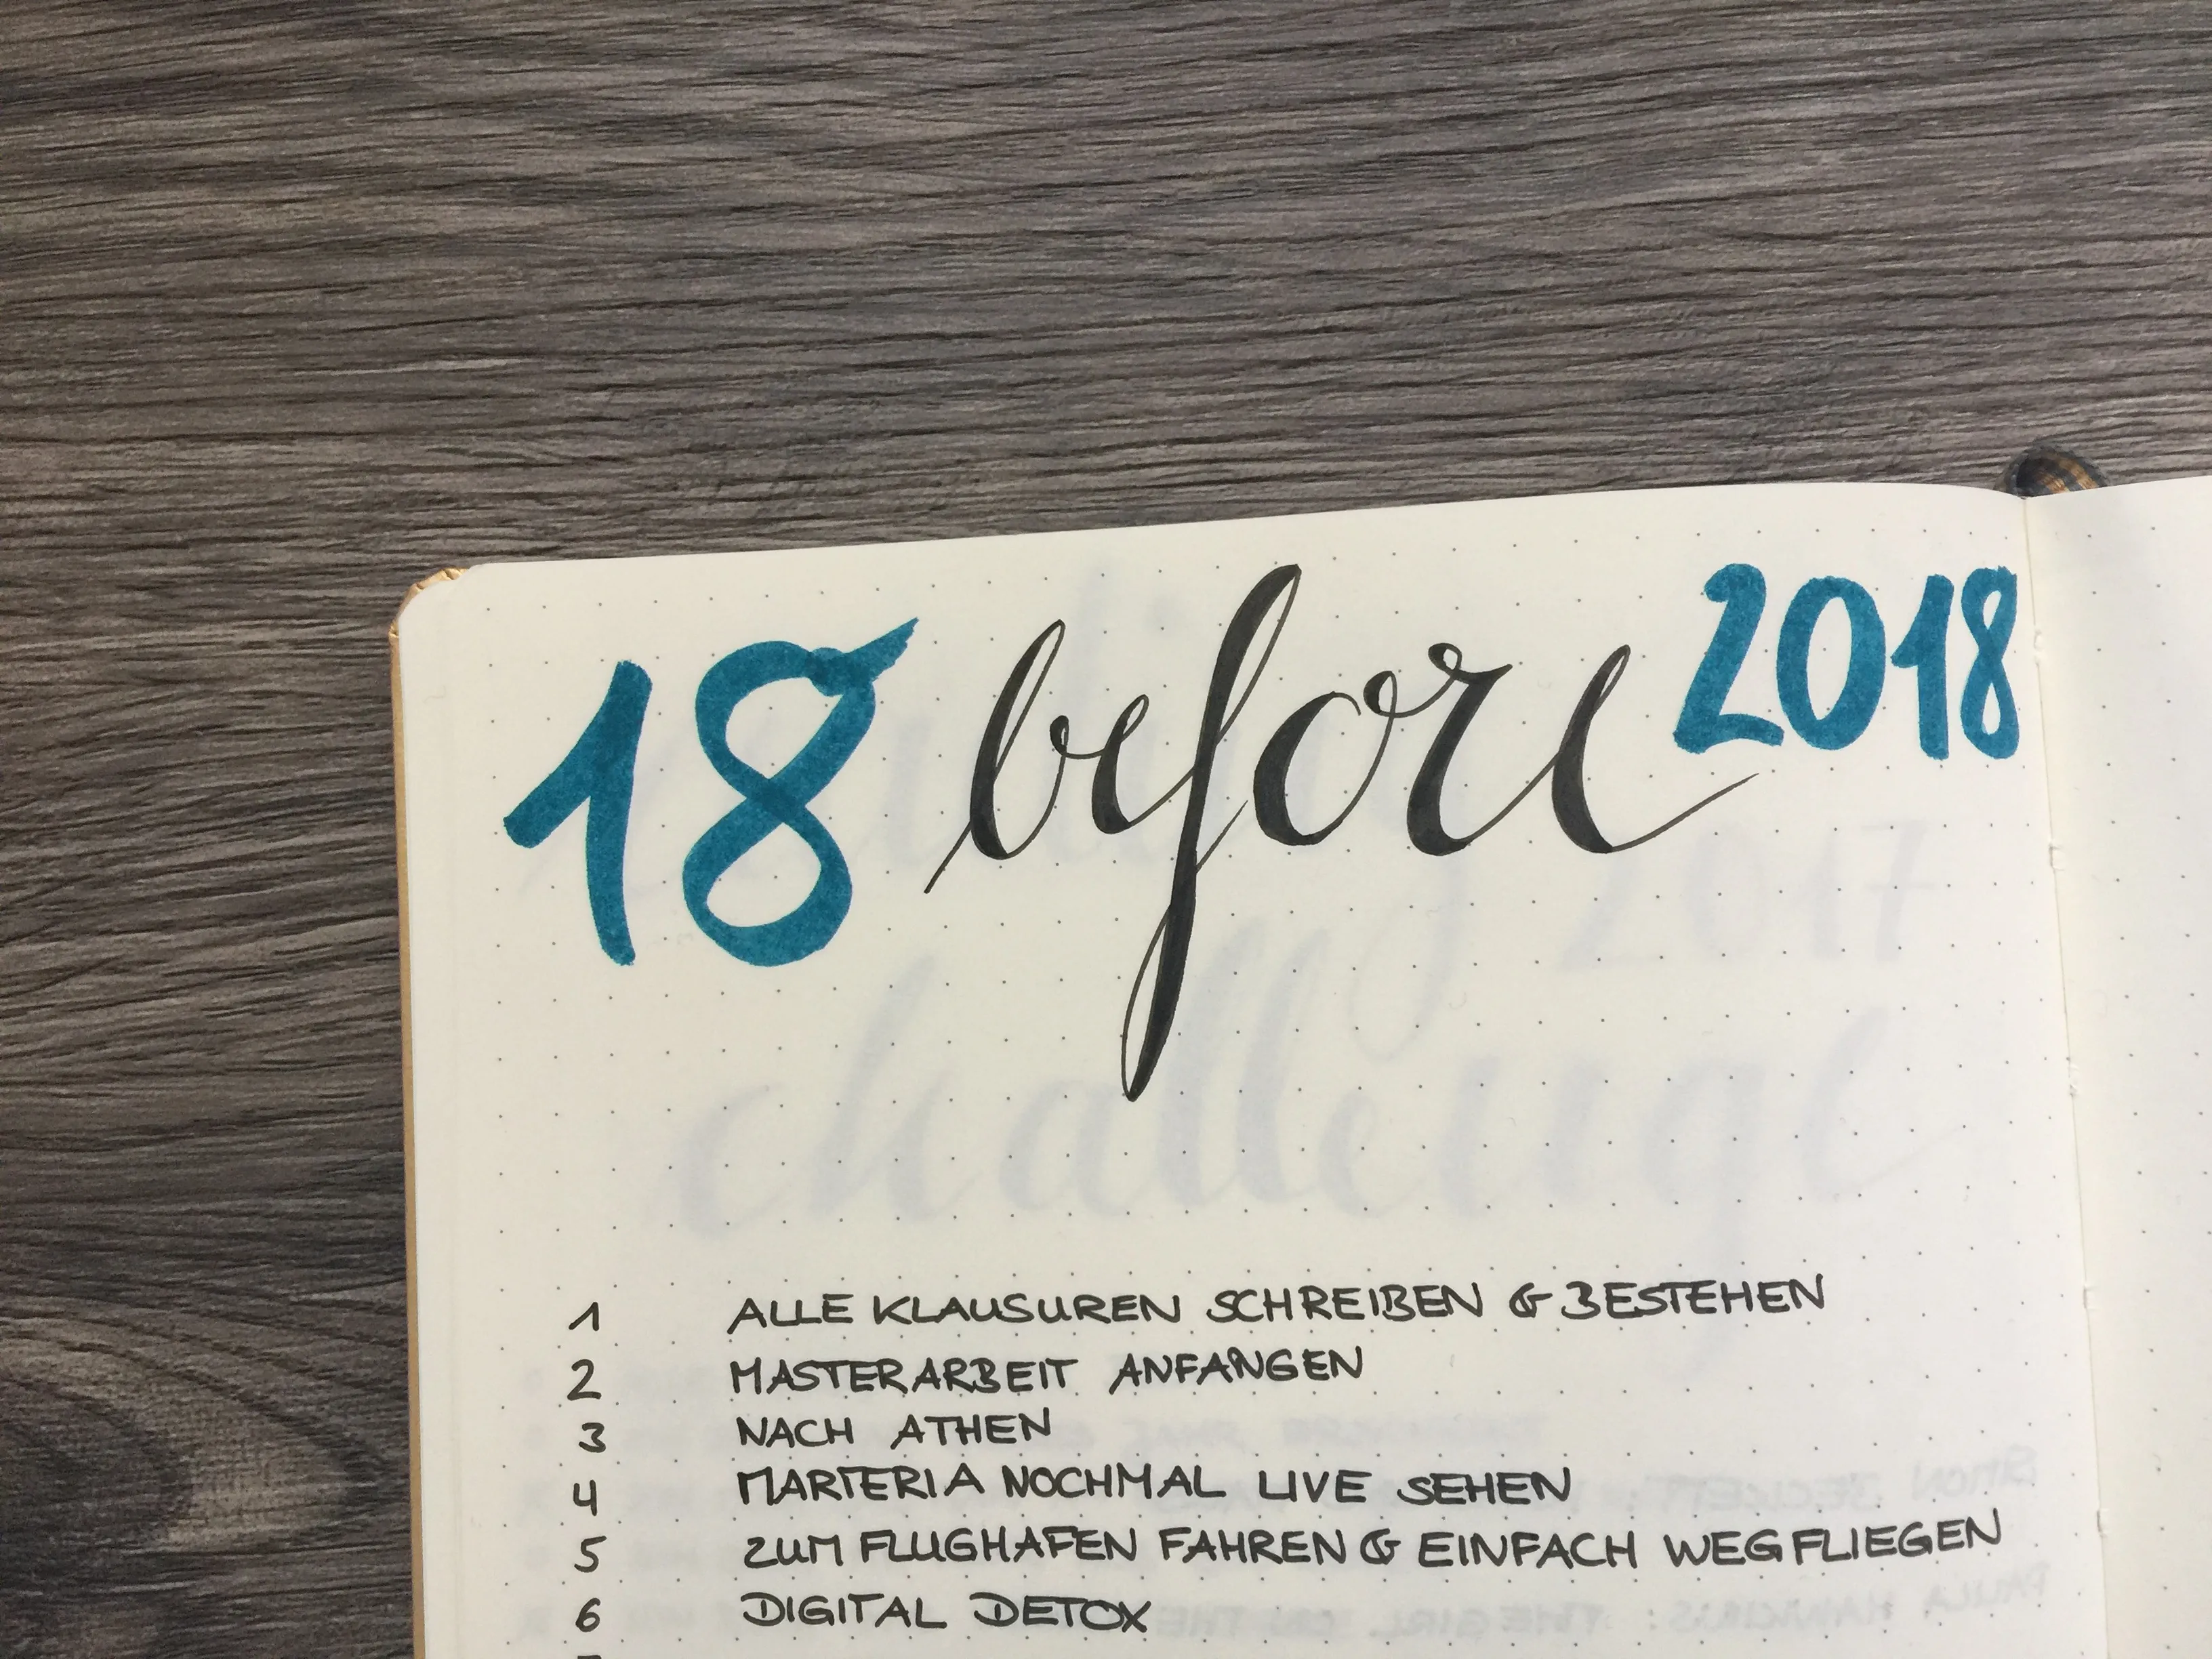 18 before 2018
challenge
2017
1 ALLE KLAUSUREN SCHREIBEN & BESTEHEN
2 MASTERARBEIT ANFANGEN
3 NACH ATHEN
4 MARTERIA NOCHMAL LIVE SEHEN
5 ZUM FLUGHAFEN FAHREN & EINFACH WEGFLIEGEN
6 DIGITAL DETOX